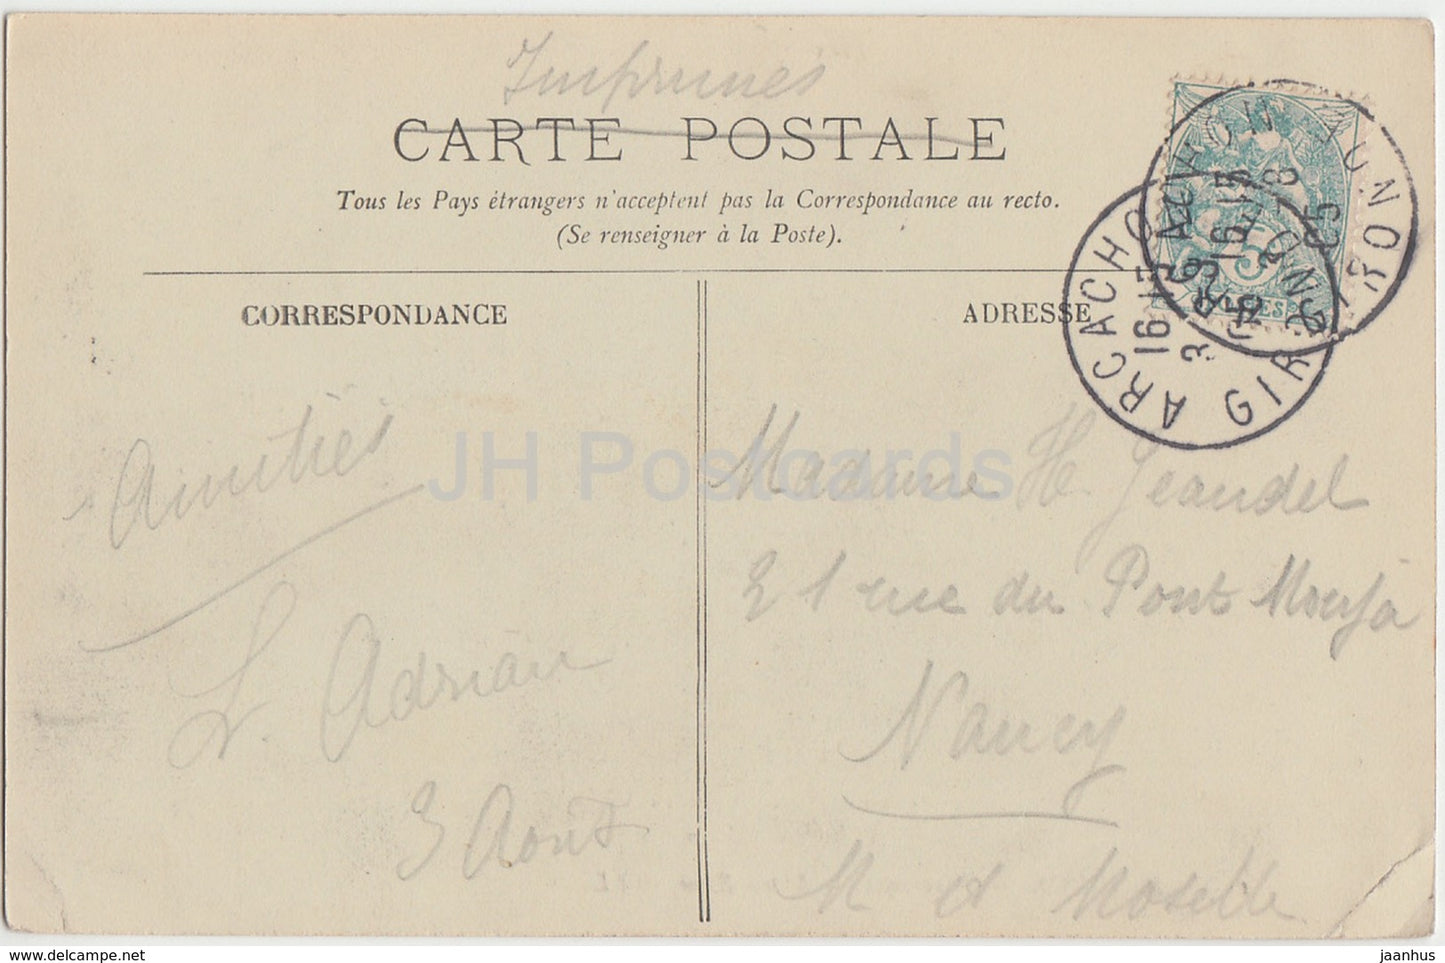 Imprimés
CARTE POSTALE
Tous les Pays étrangers n'acceptent pas la Correspondance au recto.
(Se renseigner à la Poste).
CORRESPONDANCE
ADRESSE
ARCACHON GIRONDE
16 15
3
ARCACHON GIRONDE
16 15
3 - 8
05
5
Amitiés
L. Adrian
3 Aout
Madame H. Jeandel
21 rue du Pont Mouja
Nancy
M et Moselle
JH Postcards
hip-europe.net